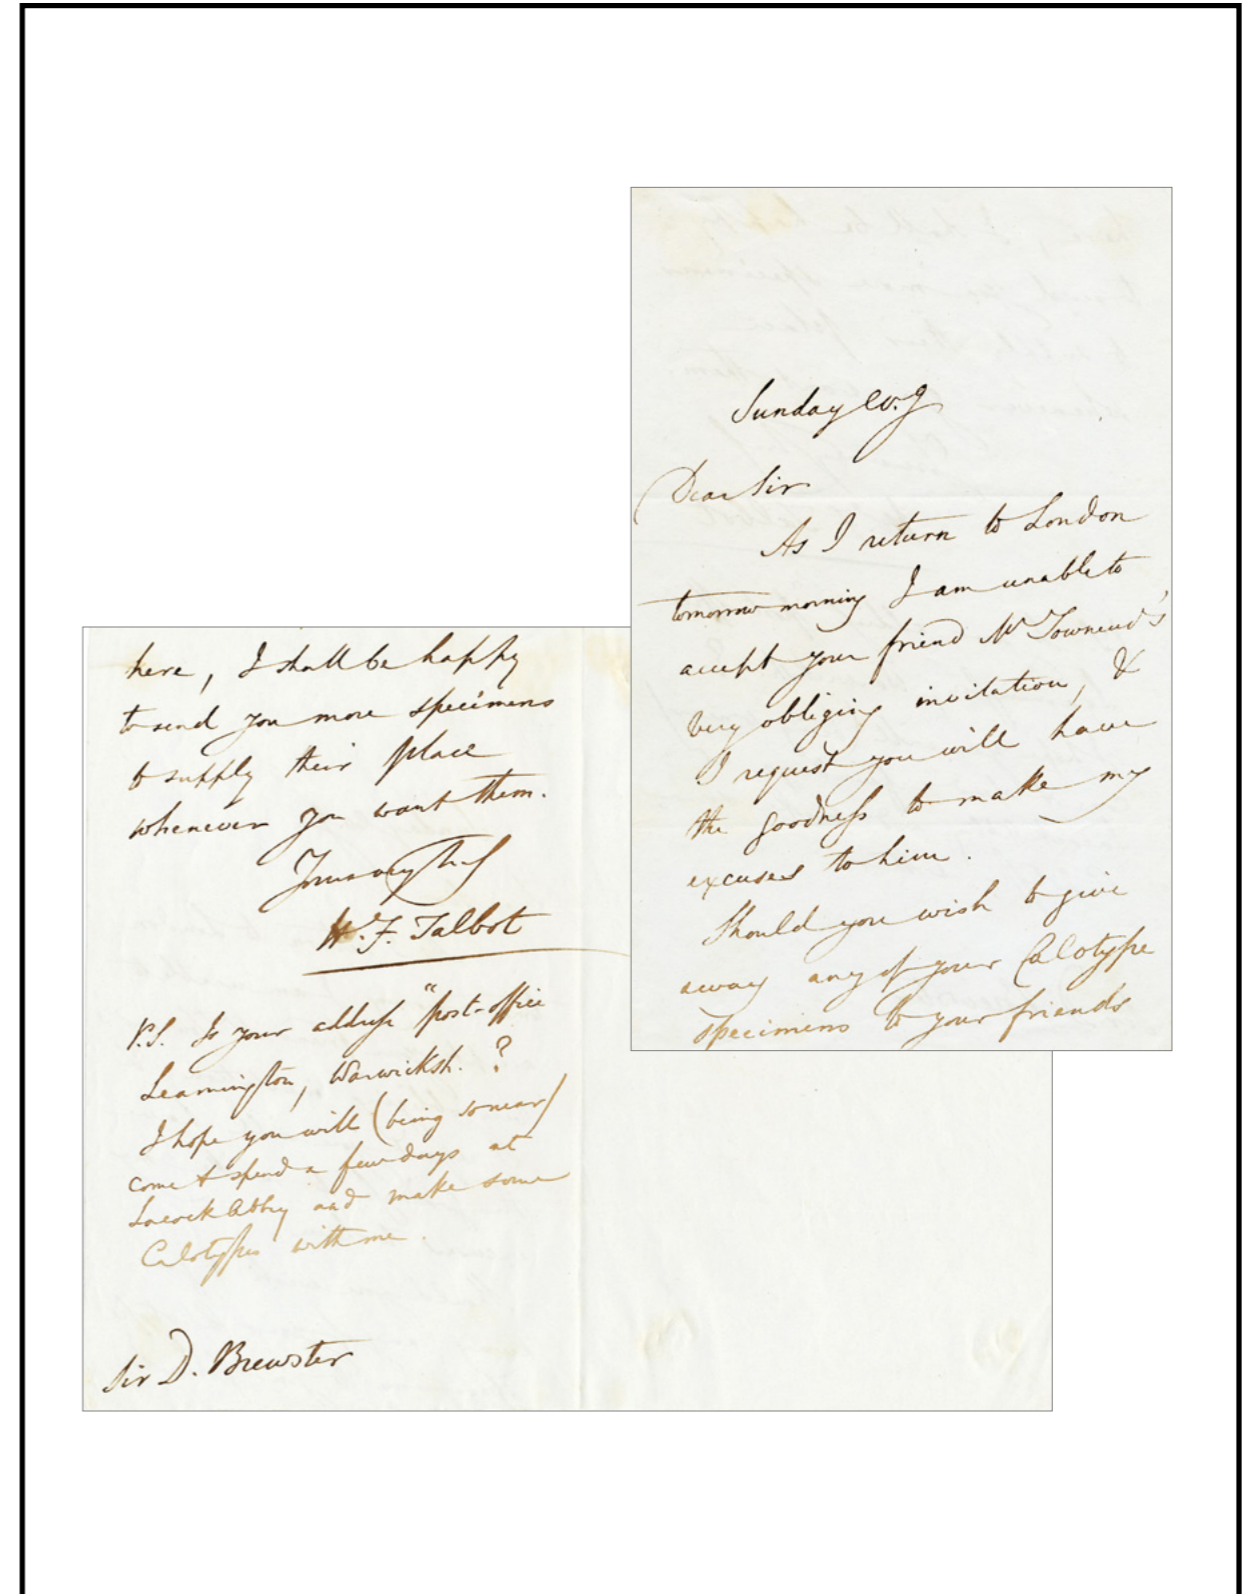 Sunday Ev.g
Dear Sir
As I return to London
tomorrow morning I am unable to
accept your friend Mr Townend's
very obliging invitation, &
I request you will have
the goodness to make my
excuses to him.
Should you wish to give
away any of your Calotype
specimens to your friends
here, I shall be happy
to send you more specimens
to supply their place
whenever you want them.
Yours very
W.F. Talbot
P.S. Is your address "post-office
Leamington, Warwicksh. ?
I hope you will (being so near)
come & spend a few days at
Lacock Abbey and make some
Calotypes with me.
Sir D. Brewster